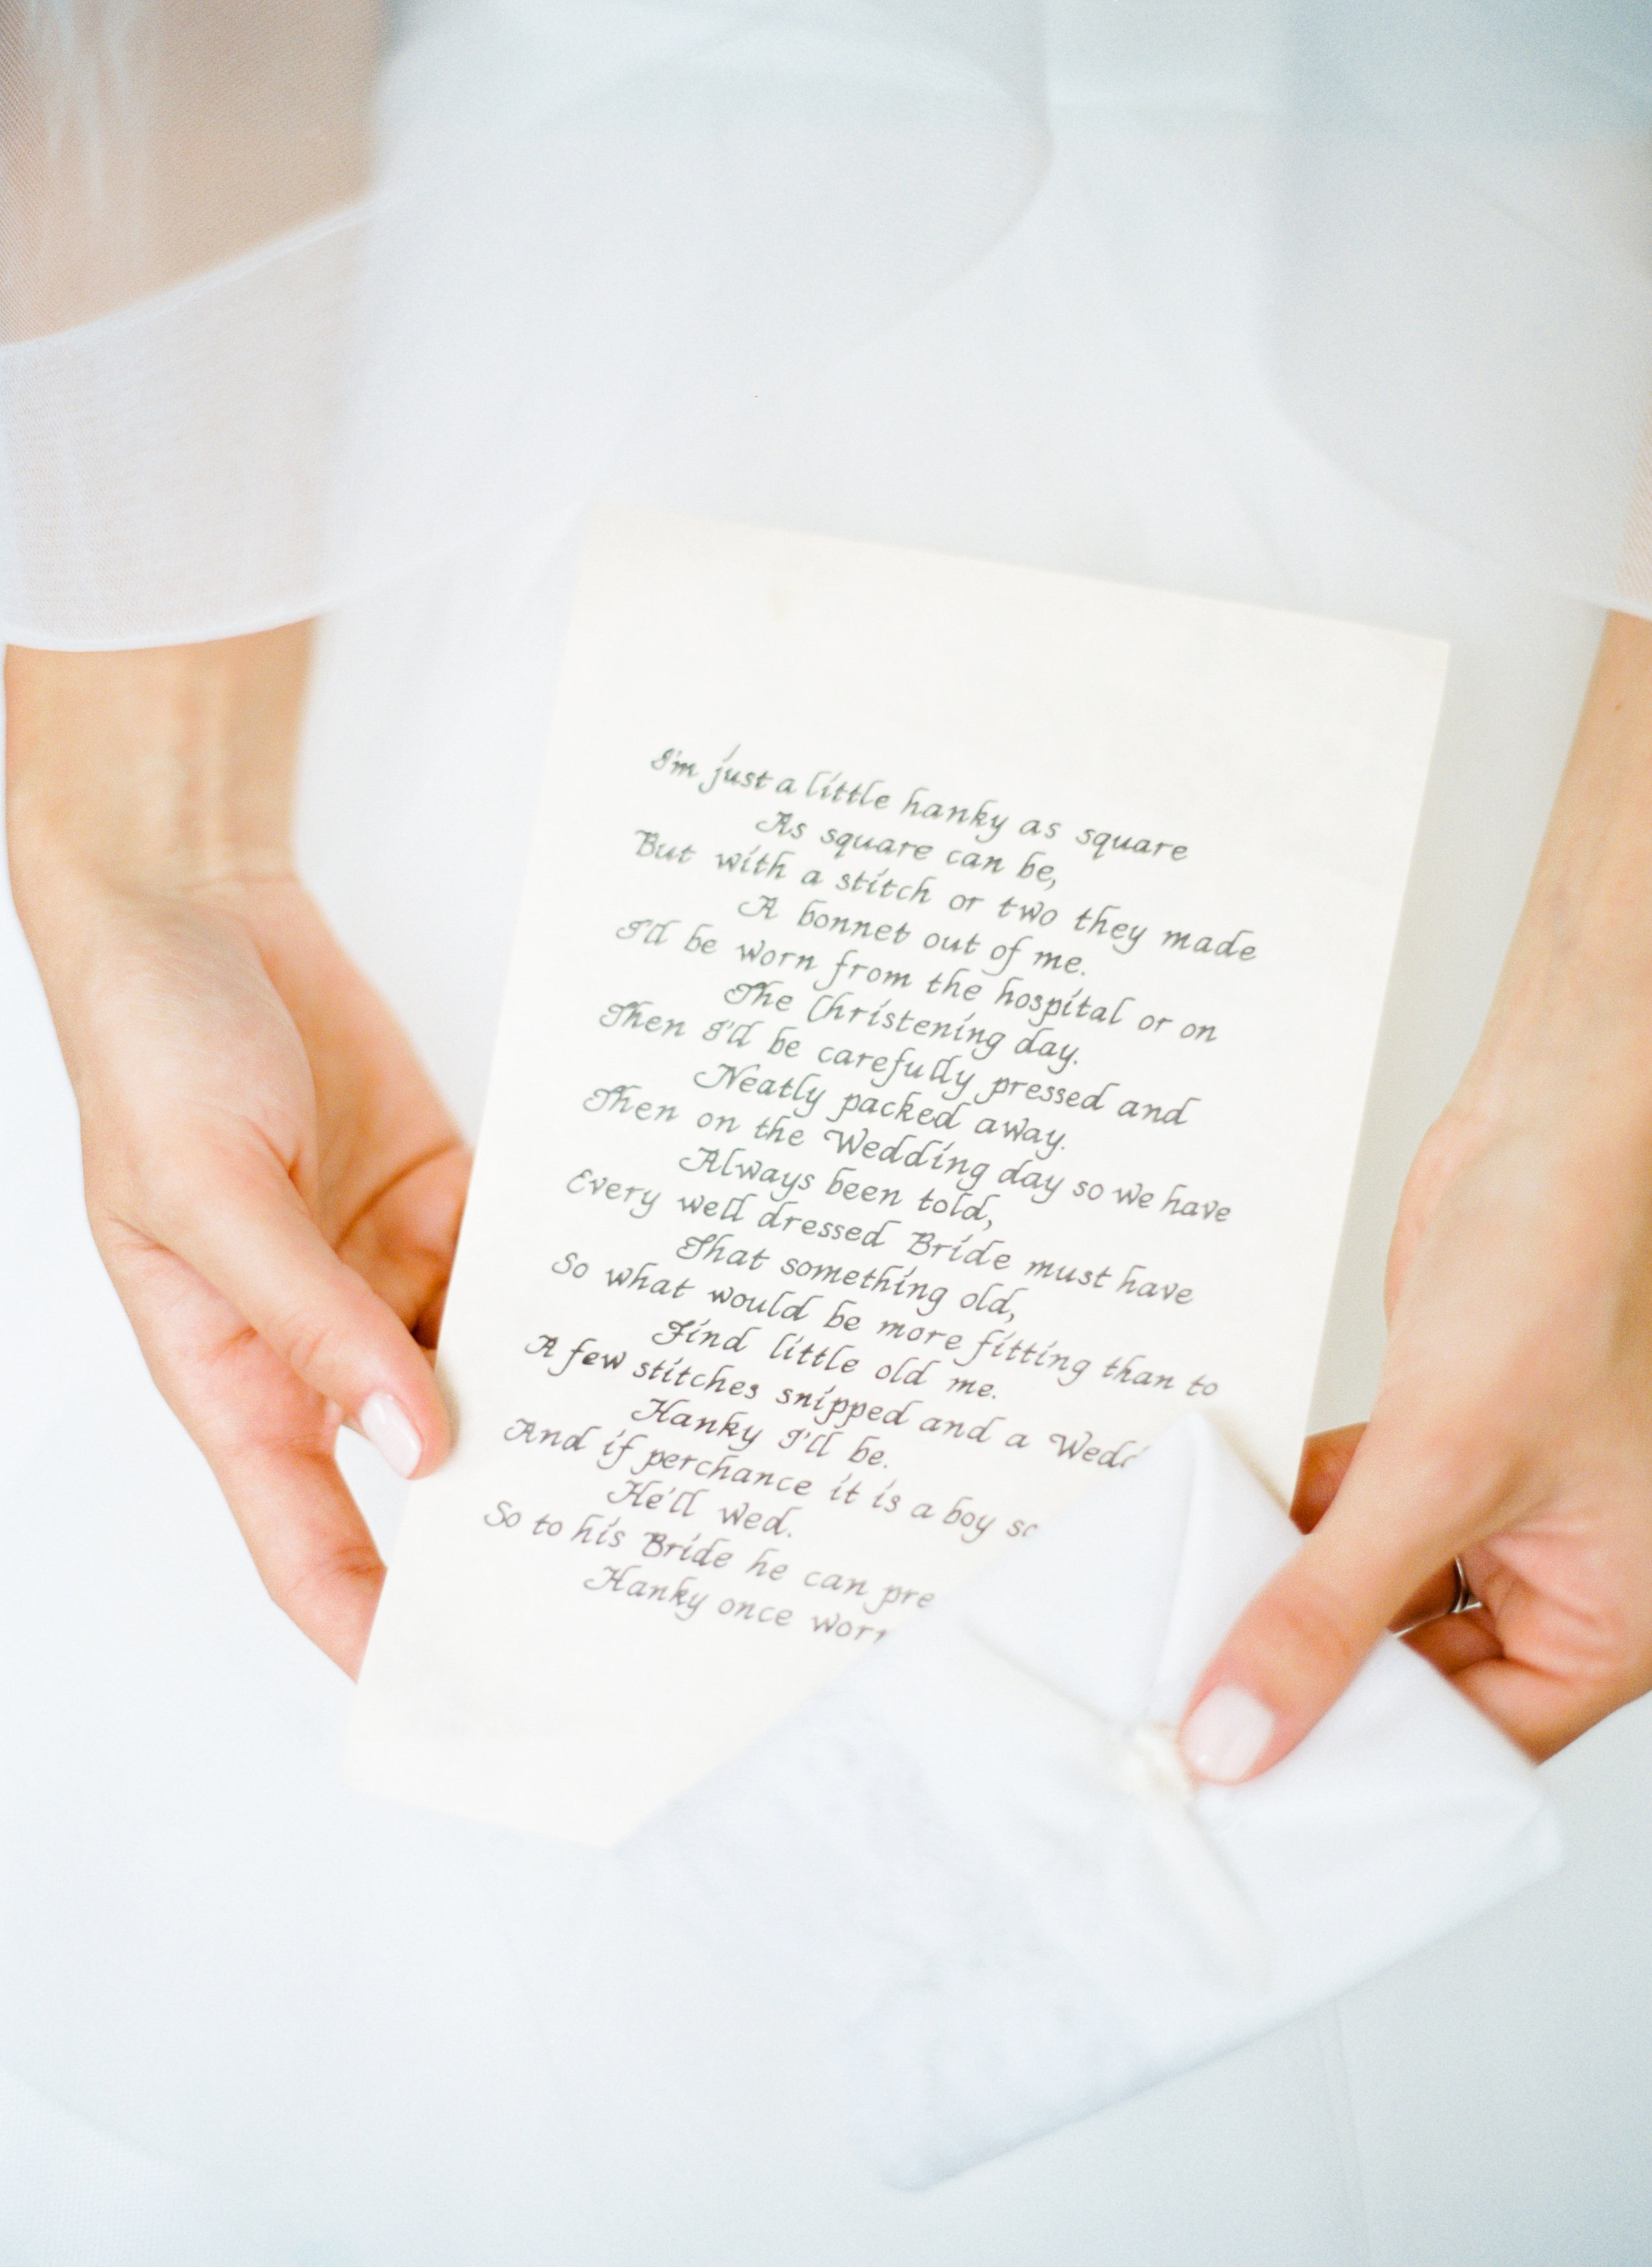 I'm just a little hanky as square
As square can be,
But with a stitch or two they made
A bonnet out of me.
I'd be worn from the hospital or on
The Christening day.
Then I'll be carefully pressed and
Neatly packed away.
Then on the Wedding day so we have
Always been told,
Every well dressed Bride must have
That something old,
So what would be more fitting than to
Find little old me.
A few stitches snipped and a
Hanky I'll be.
And if perchance it is a boy
He'll wed.
So to his Bride he can
Hanky once